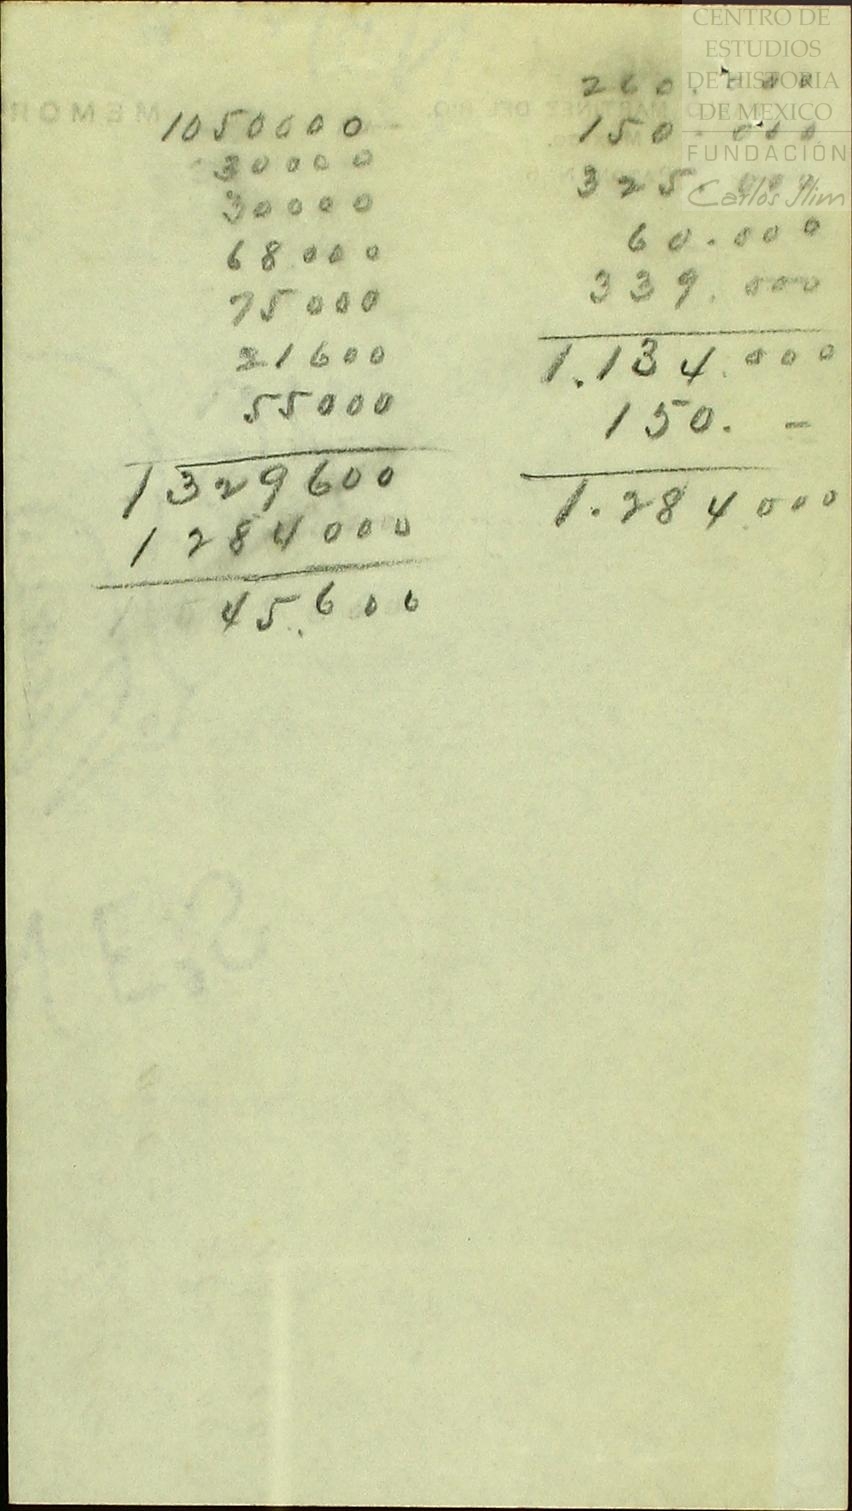 1050000
30000
30000
68000
75000
21600
55000
1329600
1284000
45.600
260.000
150.000
325.000
60.000
339.000
1.134.000
150. -
1.284000
CENTRO DE
ESTUDIOS
DE HISTORIA
DE MEXICO
FUNDACIÓN
Carlos Slim